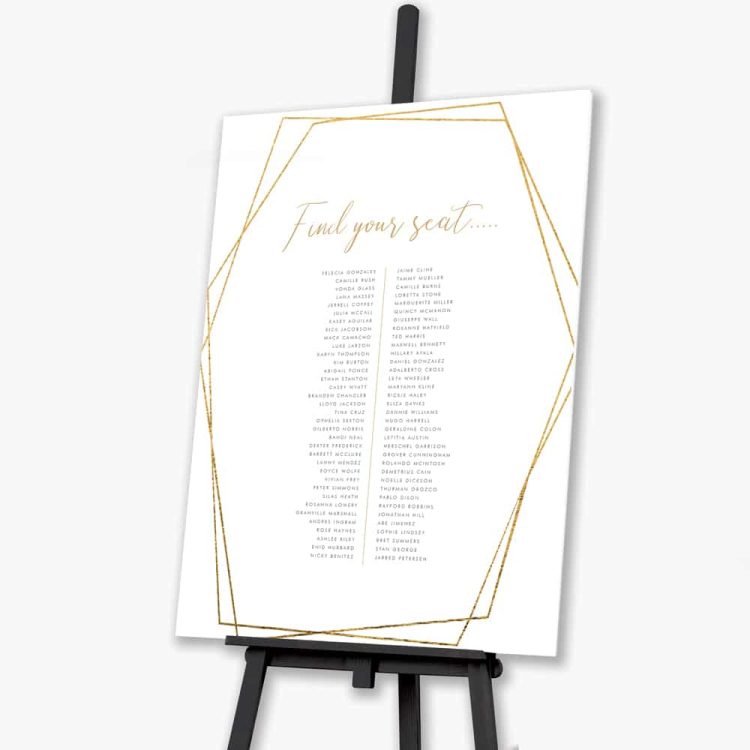 Find your seat.....
FELECIA GONZALES
CAMILLE RUSH
VONDA GLASS
LANA MASSEY
JERRELL COFFEY
JULIA MCCALL
KASEY AGUILAR
RICK JACOBSON
MACK CAMACHO
LUKE LARSON
KARYN THOMPSON
KIM BURTON
ABIGAIL PONCE
ETHAN STANTON
CASEY WYATT
BRANDEN CHANDLER
LLOYD JACKSON
TINA CRUZ
OPHELIA SEXTON
GILBERTO NORRIS
RANDI NEAL
DEXTER FREDERICK
BARRETT MCCLURE
LANNY MENDEZ
ROYCE WOLFE
VIVIAN FREY
PETER SIMMONS
SILAS HEATH
ROSANNA LOWERY
GRANVILLE MARSHALL
ANDRES INGRAM
ROSE HAYNES
ASHLEE RILEY
ENID HUBBARD
NICKY BENITEZ
JAIME CLINE
TAMMY MUELLER
CAMILLE BURNS
LORETTA STONE
MARGUERITE MILLER
QUINCY MCMAHON
GIUSEPPE WALL
ROXANNE HATFIELD
TED HARRIS
MAXWELL BENNETT
HILLARY AYALA
DANIEL GONZALEZ
ADALBERTO CROSS
LETA WHEELER
MARYANN KLINE
RICKIE HALEY
ELIZA DAVIES
DENNIS WILLIAMS
HUGO HARRELL
GERALDINE COLON
LETITIA AUSTIN
HERSCHEL GARRISON
GROVER CUNNINGHAM
ROLANDO MCINTOSH
DEMETRIUS CAIN
NOELLE DICKSON
THURMAN OROZCO
PABLO DILLON
RAYFORD ROBBINS
JONATHAN HILL
ABE JIMENEZ
SOPHIE LINDSEY
BRET SUMMERS
STAN GEORGE
JARRED PETERSEN